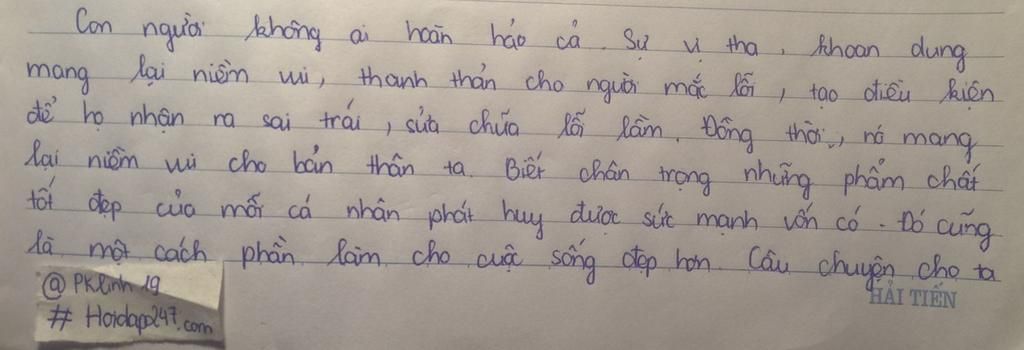 Con người không ai hoàn hảo cả. Sự vị tha, khoan dung
mang lại niềm vui, thanh thản cho người mắc lỗi, tạo điều kiện
để họ nhận ra sai trái, sửa chữa lỗi lầm. Đồng thời, nó mang
lại niềm vui cho bản thân ta. Biết chân trọng những phẩm chất
tốt đẹp của mỗi cá nhân phát huy được sức mạnh vốn có. Đó cũng
là một cách phần làm cho cuộc sống đẹp hơn. Câu chuyện cho ta
HẢI TIẾN
@PKlinh19
# Hoidap247.com